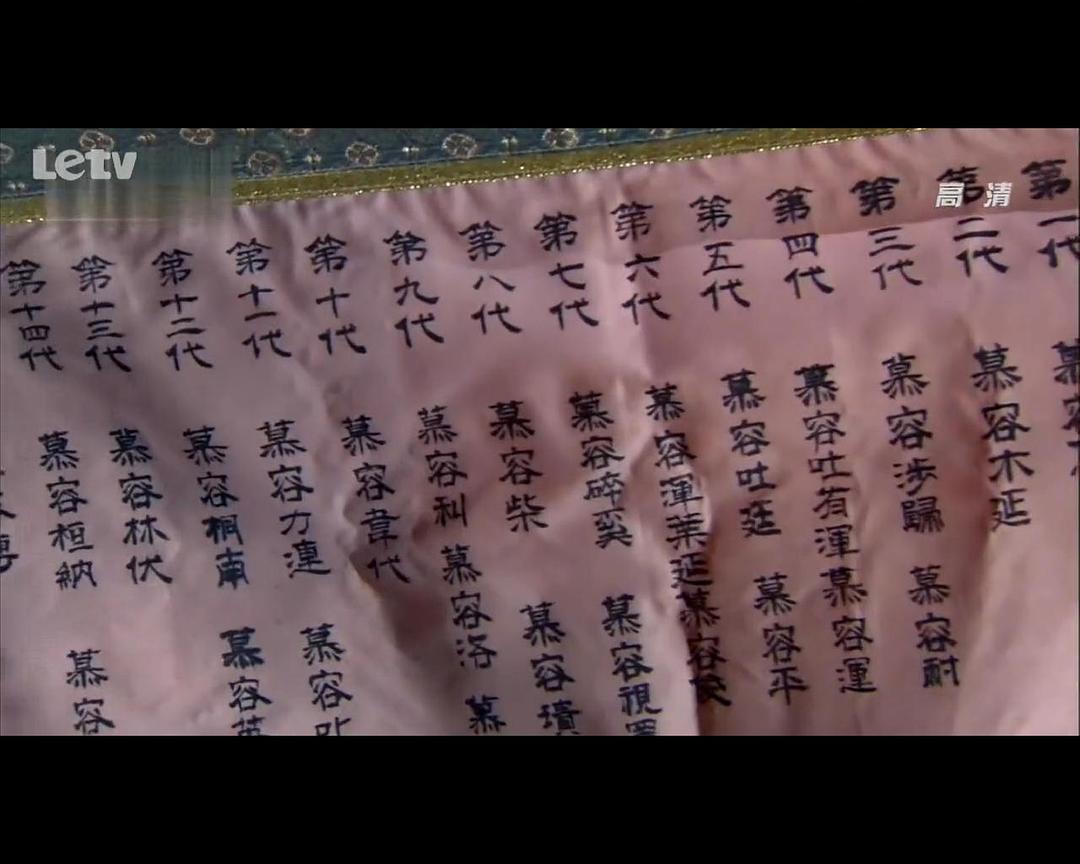 Letv
高清
第一代
第二代 慕容木延
第三代 慕容涉歸 慕容耐
第四代 慕容吐有渾 慕容運
第五代 慕容吐延 慕容平
第六代 慕容渾葉延 慕容
第七代 慕容碎奚 慕容視
第八代 慕容柴 慕容璝
第九代 慕容利 慕容洛 慕
第十代 慕容韋代
第十一代 慕容力連 慕容
第十二代 慕容桐南 慕容英
第十三代 慕容林伏
第十四代 慕容桓納 慕容